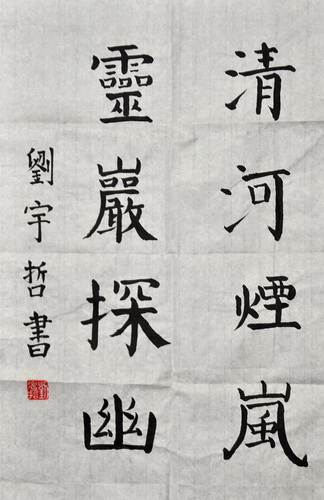 清河煙嵐
靈巖探幽
劉宇哲書